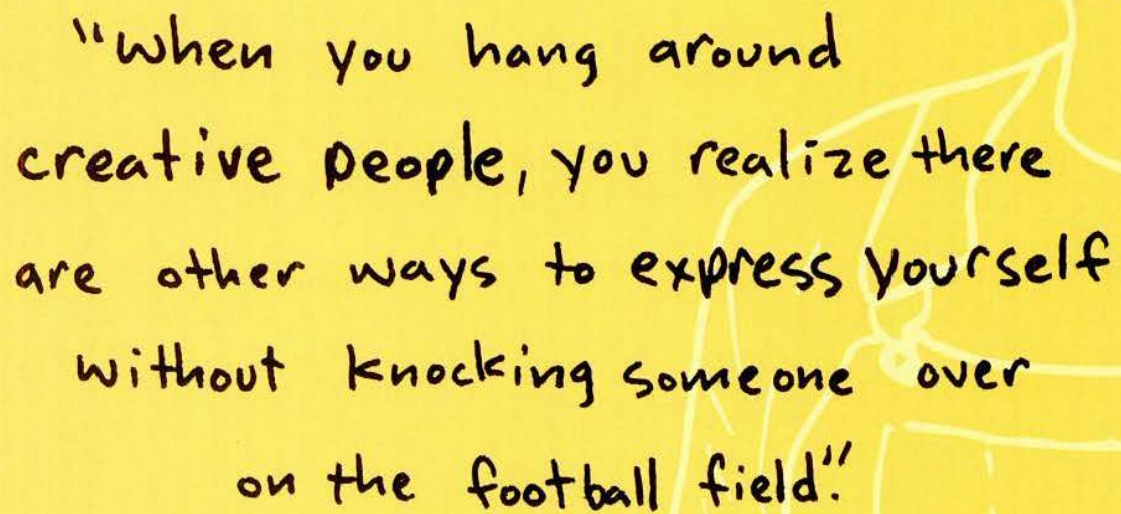 "When you hang around
creative people, you realize there
are other ways to express yourself
without knocking someone over
on the football field."